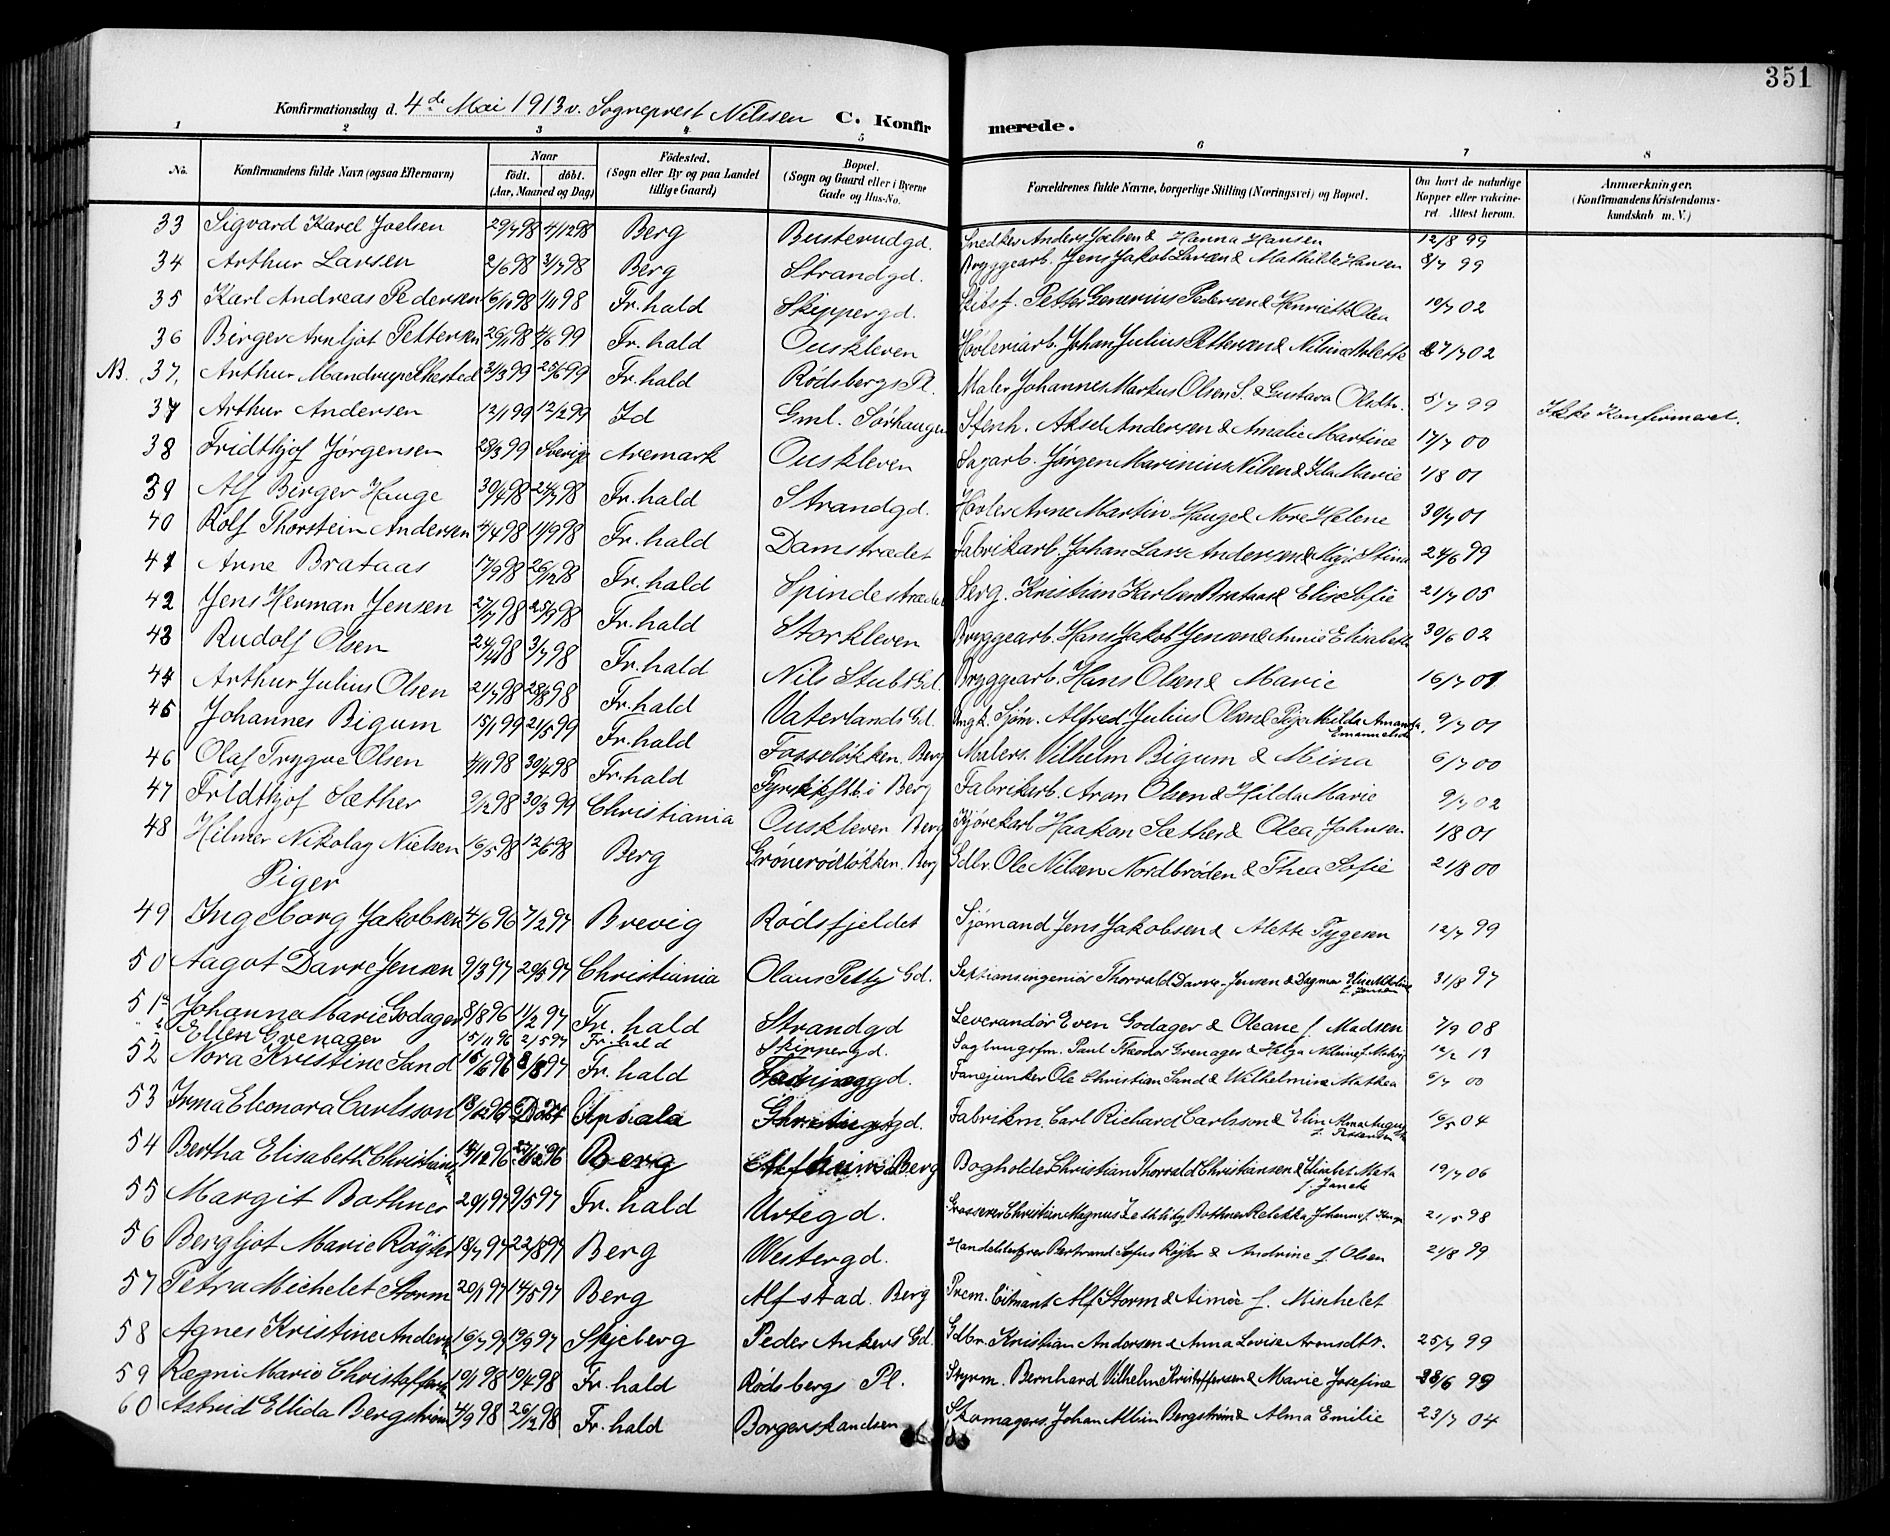 351
Konfirmationsdag d. 4de Mai 1913 v. Sogneprest Nilssen C. Konfirmerede.
1 2 3 4 5 6 7 8
No. Konfirmandens fulde Navn (ogsaa Efternavn) Naar födt. döbt. (Aar, Maaned og Dag) Födested. (Sogn eller By og paa Landet tillige Gaard) Bopæl. (Sogn og Gaard eller i Byerne Gade og Hus-No. Forældrenes fulde Navne, borgerlige Stilling (Næringsvei) og Bopæl. Om havt de naturlige Kopper eller vakcineret. Attest herom. Anmærkninger. (Konfirmandens Kristendomskundskab m. V.)
33 Sigvard Karel Joelsen 29/7 98 4/12 98 Berg Busterudgd. Snedker Anders Joelsen & Hanna Hansen 12/8 99
34 Arthur Larsen 2/6 98 3/7 98 Berg Strandgd. Bryggearb. Jens Jakob Larsen & Mathilde Hansen 8/7 99
35 Karl Andreas Pedersen 16/10 98 1/11 98 Fr.hald Skippergd. Skibsf. Petter Generius Pedersen & Henriette Olea 10/7 02
36 Birger Arnljot Pettersen 4/6 99 Fr.hald Ouskleven Høvleriarb. Johan Julius Pettersen & Nilsine Arlette 27/7 02
NB. 37. Arthur Mandrup Skested 3/3 99 25/6 99 Fr.hald Rødsbergs Pl. Maler Johannes Markus Olsen S. & Gustava Olsdtr. 5/7 99 Ikke Konfirmeret.
37 Arthur Andersen 12/1 99 12/2 99 Id Gml. Sørhaugen Stenh. Aksel Andersen & Amalie Martine 17/7 00
38 Fridthjof Jørgensen 28/3 99 Sverige Aremark Ouskleven Sagarb. Jørgen Marinius Nilsen & Ida Marie 1/8 01
39 Alf Birger Hauge 30/4 98 24/7 98 Fr.hald Strandgd. Høvler Arne Martin Hauge & Nore Helene 30/7 01
40 Rolf Thorstein Andersen 4/4 98 11/9 98 Fr.hald Damstrædet Fabrikarb. Johan Lars Andersen & Stina 24/6 99
41 Arne Brataas 17/9 98 26/12 98 Fr.hald Spindestrædet Serg. Kristian Karlsen Brataas & Elise Sofie 21/7 05
42 Jens Herman Jensen 27/7 98 25/9 98 Fr.hald Storkleven Bryggearb. Hans Jakob Jensen & Annie Elisabeth 30/6 02
43 Rudolf Olsen 3/7 98 Fr.hald Nils Stubs Gd. Bryggearb. Hans Olsen & Marie 16/7 01
44 Arthur Julius Olsen 21/7 98 28/8 98 Fr.hald Vaterlands Gd. Ungk. Sjøm. Alfred Julius Olsen & Pige Milda Amanda Emanuelsdtr. 9/7 01
45 Johannes Bigum 15/1 99 21/5 99 Fr.hald Fosseløkken. Berg Malers. Vilhelm Bigum & Mina 6/7 00
46 Olaf Trygve Olsen 4/11 98 30/4 98 Fr.hald i Berg Fabrikarb. Aron Olsen & Hilda Marie 9/7 02
47 Fridthjof Sæther 9/12 98 30/3 99 Christiania Ouskleven Berg Kjørekarl Haakon Sæther & Olea Johnsen 1/8 01
48 Hilmer Nikolay Nielsen 16/5 98 12/6 98 Berg Grønerødløkken. Berg Gdbr. Ole Nilsen Nordbrøden & Thea Sofie 21/8 00
Piger
49 Ingeborg Jakobsen 4/6 96 7/2 97 Brevig Rødsfjeldet Sjømand Jens Jakobsen & Alette Tygesen 12/7 99
50 Aagot Darre Jensen 9/3 97 20/5 97 Christiania Olaus Petty Gd. Sektionsingeniør Thorvald Darre-Jensen & Dagmar f. Jensen 31/8 97
51a Johanna Marie Godager 8/8 96 1/2 97 Fr.hald Strandgd Leverandør Even Godager & Oleane f. Madsen 7/9 08
" b Ellen Grenager 15/11 96 2/5 97 Fr.hald Skippergd. Sagbrugsfm. Paul Theodor Grenager & Helga 12/2 13
52 Nora Kristine Sand 16/6 96 8/8 97 Fr.hald Fanejunker Ole Christian Sand & Wilhelmine Mathea 6/7 00
53 Irma Eleonora Carlsson 18/12 95 Døbt Upsala Fabrikm. Carl Richard Carlsson & Elin Alma Augusta 16/5 04
54 Bertha Elisabeth Christiansen 14/11 96 27/12 96 Berg Alfheim i Berg Bogholder Christian Thorvald Christiansen & Elisabet 19/7 06
55 Margit Bothner 20/1 97 9/5 97 Fr.hald Urtegd. Grosserer Christian Magnus Bothner & Rebekka Johanne f. 21/5 98
56 Bergljot Marie Røyter 18/7 97 22/8 97 Berg Westergd. Bertrand Sofus Røyter & Andrine f. Olsen 21/8 99
57 Petra Michelet Storm 20/1 97 14/5 97 Berg Alfstad. Berg Prem. Løitnant Alf Storm & Aimée f. Mischelet
58 Agnes Kristine Andersen 16/7 97 19/9 97 Skjeberg Peder Ankers Gd. Gdbr. Kristian Andersen & Anna Lovise Arnsdtr. 25/7 99
59 Ragni Marie Christoffersen 19/1 98 19/4 98 Fr.hald Rødsbergs Pl. Styrm. Bernhard Vilhelm Kristoffersen & Marie Josefine 28/6 99
60 Astrid Ellida Bergstrøm 4/9 98 26/12 98 Fr.hald Borgerskandsen Skomagers. Johan Albin Bergstrøm & Alma Emilie 23/7 04